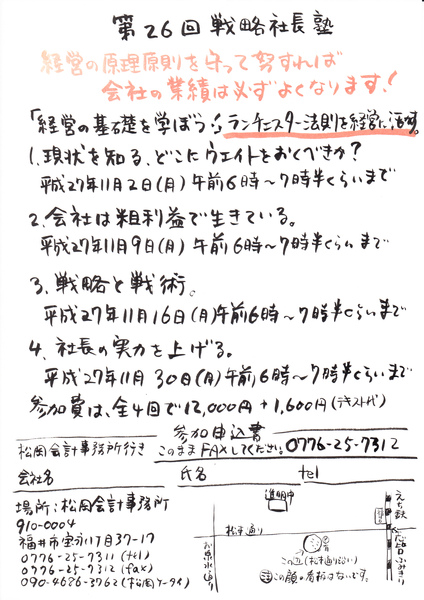 第26回戦略社長塾
経営の原理原則を守って努すれば
会社の業績は必ずよくなります!
「経営の基礎を学ぼう」ランチェスター法則を経営に活す。
1.現状を知る、どこにウエイトをおくべきか?
平成27年11月2日(月)午前6時~7時半くらいまで
2.会社は粗利益で生きている。
平成27年11月9日(月)午前6時~7時半くらいまで
3.戦略と戦術。
平成27年11月16日(月)午前6時~7時半くらいまで
4.社長の実力を上げる。
平成27年11月30日(月)午前6時~7時半くらいまで
参加費は、全4回で12,000円+1,600円(テキスト代)
参加申込書
松岡会計事務所行き このままFAXしてください。0776-25-7312
会社名 氏名 tel
場所:松岡会計事務所
910-0004
福井市宝永1丁目37-17
0776-25-7311 (tel)
0776-25-7312 (fax)
090-4686-3762 (松岡ケータイ)
進明中
松本通り
お泉水通り
えち鉄
この辺(松本通り沿い)
この顔の看板はないです。